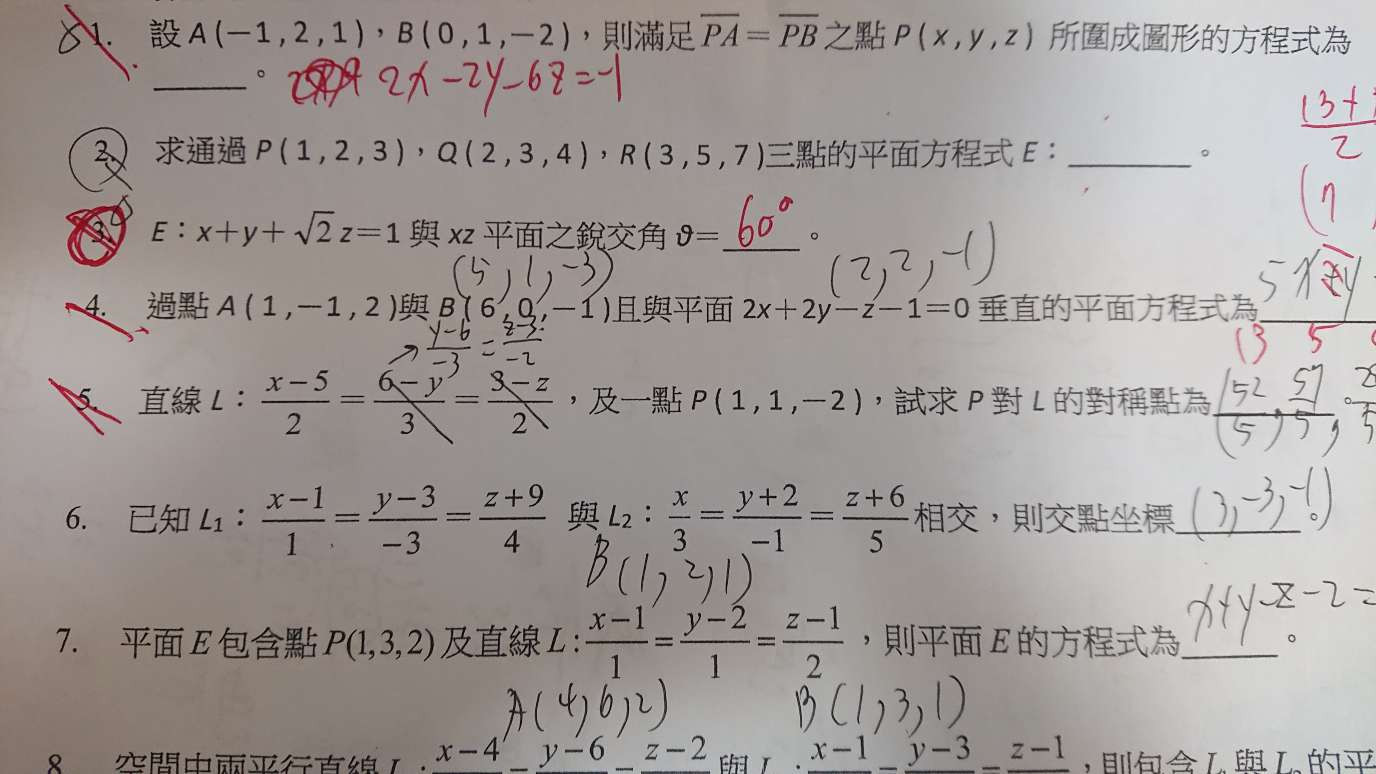 1. 設 A(-1,2,1)，B(0,1,-2)，則滿足 PA = PB 之點 P(x,y,z) 所圍成圖形的方程式為
______。 2x-2y-6z=-1
13+
2
2. 求通過 P(1,2,3)，Q(2,3,4)，R(3,5,7)三點的平面方程式 E：________。
3. E：x+y+√2z=1 與 xz 平面之銳交角 θ= 60° 。
(5,1,-3) (2,2,-1)
4. 過點 A(1,-1,2)與 B(6,0,-1)且與平面 2x+2y-z-1=0 垂直的平面方程式為
y-6/-3 = z-3/-2
5. 直線 L：x-5/2 = 6-y/3 = 3-z/2，及一點 P(1,1,-2)，試求 P 對 L 的對稱點為 (52/5, 57/5,
6. 已知 L₁：x-1/1 = y-3/-3 = z+9/4 與 L₂：x/3 = y+2/-1 = z+6/5 相交，則交點坐標 (3,-3,-1)。
B(1,2,1)
7. 平面 E 包含點 P(1,3,2) 及直線 L：x-1/1 = y-2/1 = z-1/2，則平面 E 的方程式為 x+y-z-2= 。
A(4,6,2) B(1,3,1)
8. 空間中兩平行直線 L：x-4 = y-6 = z-2 與 L：x-1 = y-3 = z-1，則包含 L₁ 與 L₂ 的平